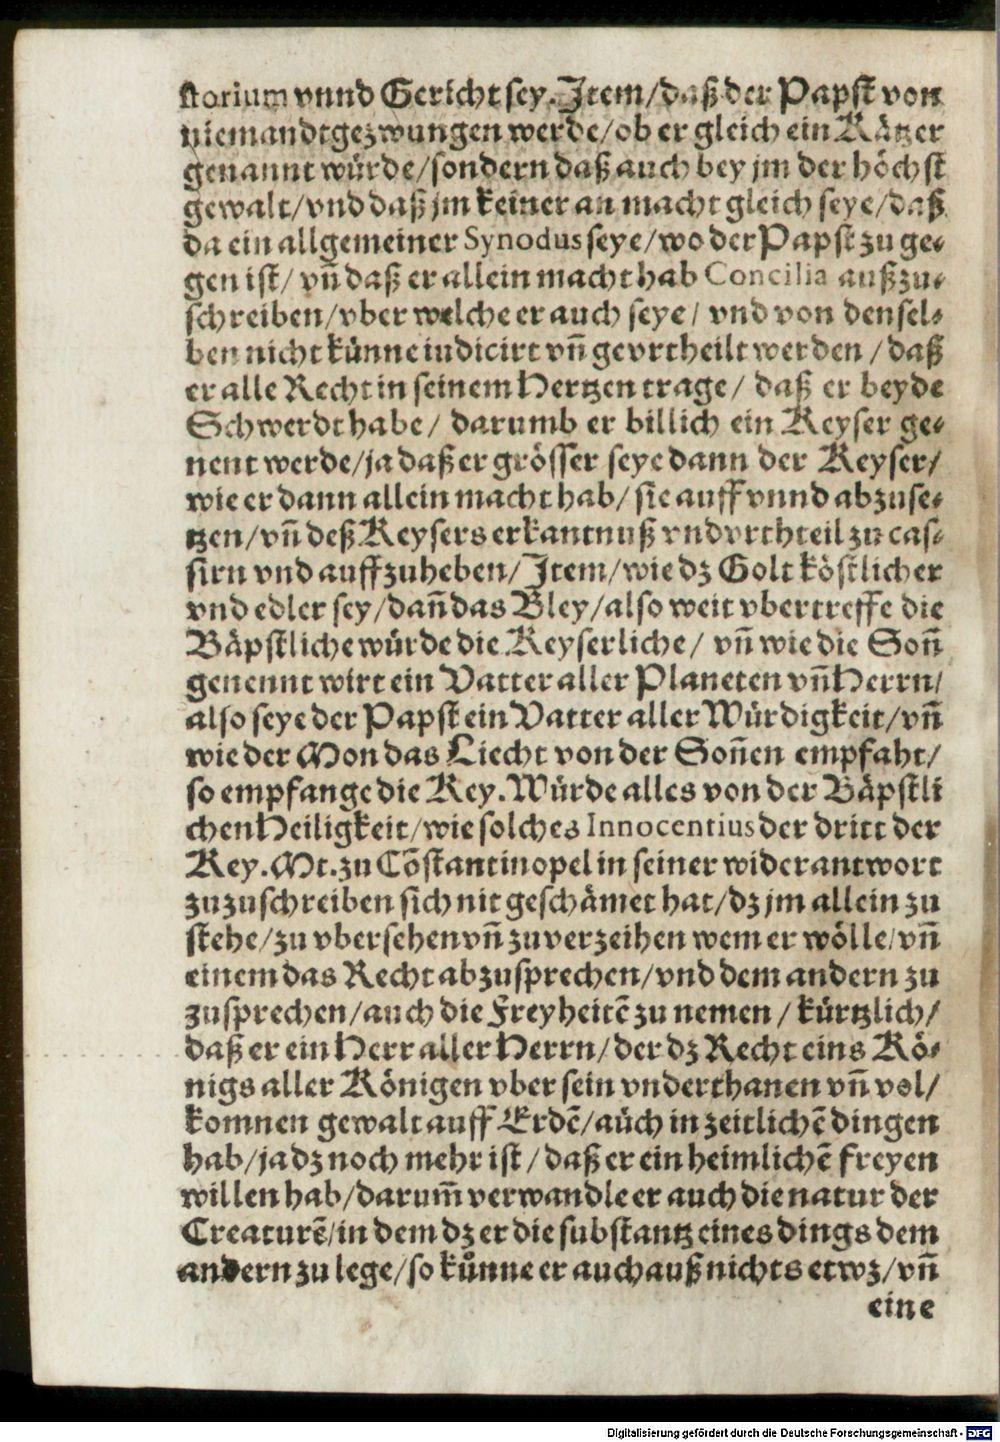 storium vnnd Gericht sey. Item/daß der Papst von
niemandt gezwungen werde/ob er gleich ein Kätzer
genannt würde/sondern daß auch bey jm der höchst
gewalt/vnd daß jm keiner an macht gleich seye/daß
da ein allgemeiner Synodus seye/wo der Papst zu ge-
gen ist/ vñ daß er allein macht hab Concilia außzu-
schreiben/vber welche er auch seye/ vnd von densel-
ben nicht künne iudicirt vñ gevrtheilt werden /daß
er alle Recht in seinem Hertzen trage/ daß er beyde
Schwerdt habe/ darumb er billich ein Keyser ge-
nent werde/ja daß er grösser seye dann der Keyser/
wie er dann allein macht hab/ sie auff vnnd abzuse-
tzen/vñ deß Keysers erkantnuß vnd vrthteil zu cas-
sirn vnd auffzuheben/Item/wie dz Golt köstlicher
vnd edler sey/dañ das Bley/also weit vbertreffe die
Bäpstliche würde die Keyserliche/ vñ wie die Soñ
genennt wirt ein Vatter aller Planeten vñ Herrn/
also seye der Papst ein Vatter aller Würdigkeit/vñ
wie der Mon das Liecht von der Soñen empfaht/
so empfange die Key. Würde alles von der Bäpstli
chen Heiligkeit/wie solches Innocentius der dritt der
Key. Mt. zu Cõstantinopel in seiner widerantwort
zuzuschreiben sich nit geschämet hat/dz jm allein zu
stehe/zu vbersehen vñ zu verzeihen wem er wölle/vñ
einem das Recht abzusprechen/vnd dem andern zu
zusprechen/auch die Freyheitẽ zu nemen / kürtzlich/
daß er ein Herr aller Herrn/der dz Recht eins Kö-
nigs aller Königen vber sein vnderthanen vñ vol/
komnen gewalt auff Erdẽ/aůch in zeitlichẽ dingen
hab/ja dz noch mehr ist /daß er ein heimlichẽ freyen
willen hab/darum̃ verwandle er auch die natur der
Creaturẽ/in dem dz er die substantz eines dings dem
andern zu lege/so kůnne er auch auß nichts etwz/vñ
eine
Digitalisierung gefördert durch die Deutsche Forschungsgemeinschaft - DFG